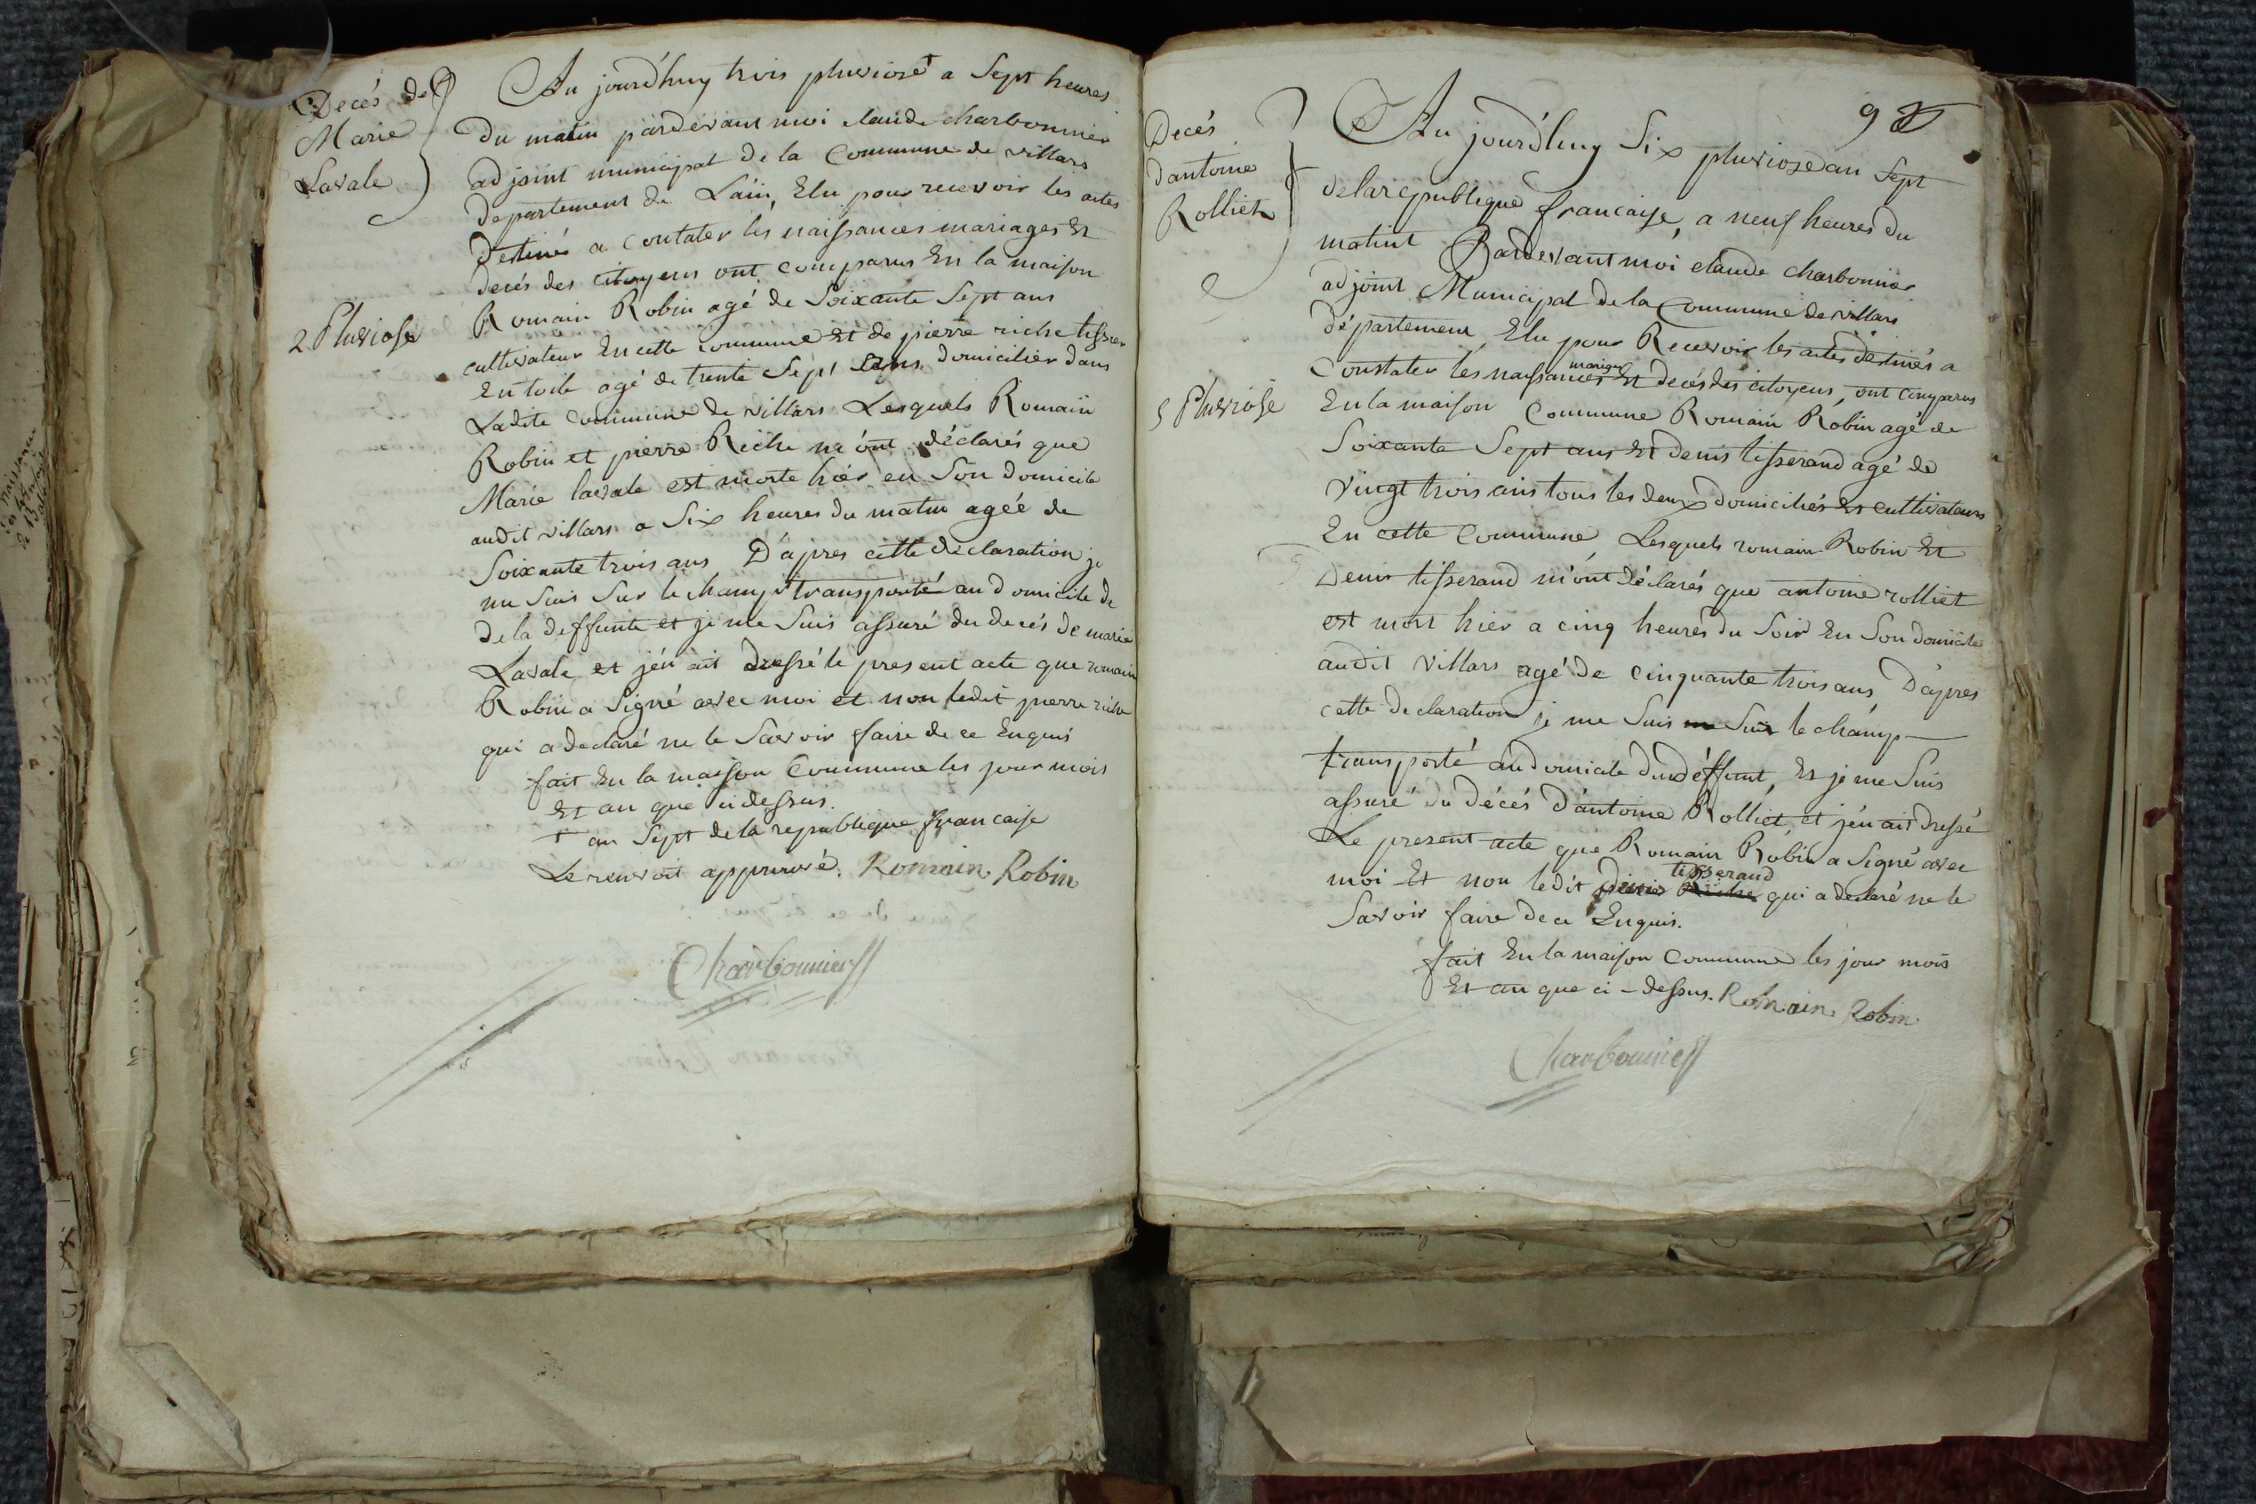 Decés de
Marie
Lavale
2 Pluviose
Au jourd'huy trois pluviose + a Sept heures
du matin pardevant moi claude charbonnier
adjoint municipal de la Commune de villars
departement de Lain, Elu pour recevoir les actes
destinés a contater les naissances mariages Et
decés des citoyens ont comparus En la maison
Romain Robin agé de Soixante Sept ans
cultivateur En cette commune Et de pierre riche tissier
En toile agé de trente Sept ans domicilier dans
Ladite commune de villars Lesquels Romain
Robin et pierre Riche m'ont déclarés que
Marie lavale est morte hier en Son domicile
audit villars a Six heures du matin agéé de
Soixante trois ans D'apres cette declaration je
me Suis Sur le champ transporté au domicile de
de la deffunte et je me Suis assuré du decés de marie
Lavale et j'en ait dressé le present acte que romain
Robin a Signé avec moi et non ledit pierre riche
qui a declaré ne le Savoir faire de ce Enquis
fait En la maison Commune les jour mois
Et an que ci dessus.
+ an Sept de la republique francaise
Le renvoit approuvé. Romain Robin
Charbonnier
9
Decés
dantoine
Rolliet
5 Pluviose
Au jourd'huy Six pluviose an Sept
de la republique francaise, a neuf heures du
matint Pardevant moi claude charbonnier
adjoint Municipal de la Commune de villars
département, Elu pour Recevoir les actes destinés a
mariages
Constater les naissances Et decés des citoyens, ont comparus
En la maison Commune Romain Robin agé de
Soixante Sept ans Et denis tisserand agé de
vingt trois ans tous les deux domiciliés Et cultivateurs
En cette Commune, Lesquels romain Robin Et
Denis tisserand m'ont déclarés que antoine rolliet
est mort hier a cinq heures du Soir En Son domicile
audit villars agé de cinquante trois ans D'apres
cette declaration je me Suis Sur le champ
transporté au domicile dud déffunt, Et je me Suis
assuré du décés d'antoine Rolliet, et j'en ait dressé
Le present acte que Romain Robin a Signé avec
tisserand
moi Et non ledit denis Riche qui a declaré ne le
Savoir faire de ce Enquis.
fait En la maison Commune les jour mois
Et an que ci-dessus. Romain Robin
Charbonnier